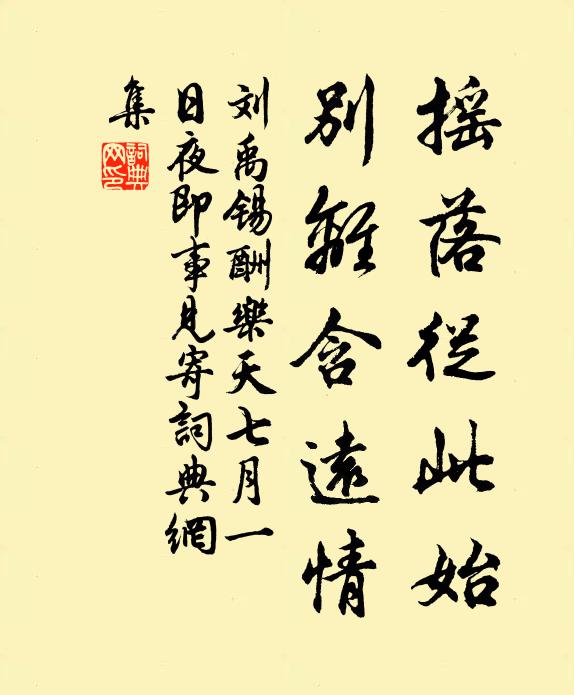 搖落從此始
別離含遠情
刘禹锡酬樂天七月一
日夜即事見寄詞典網
集
詞典
网印